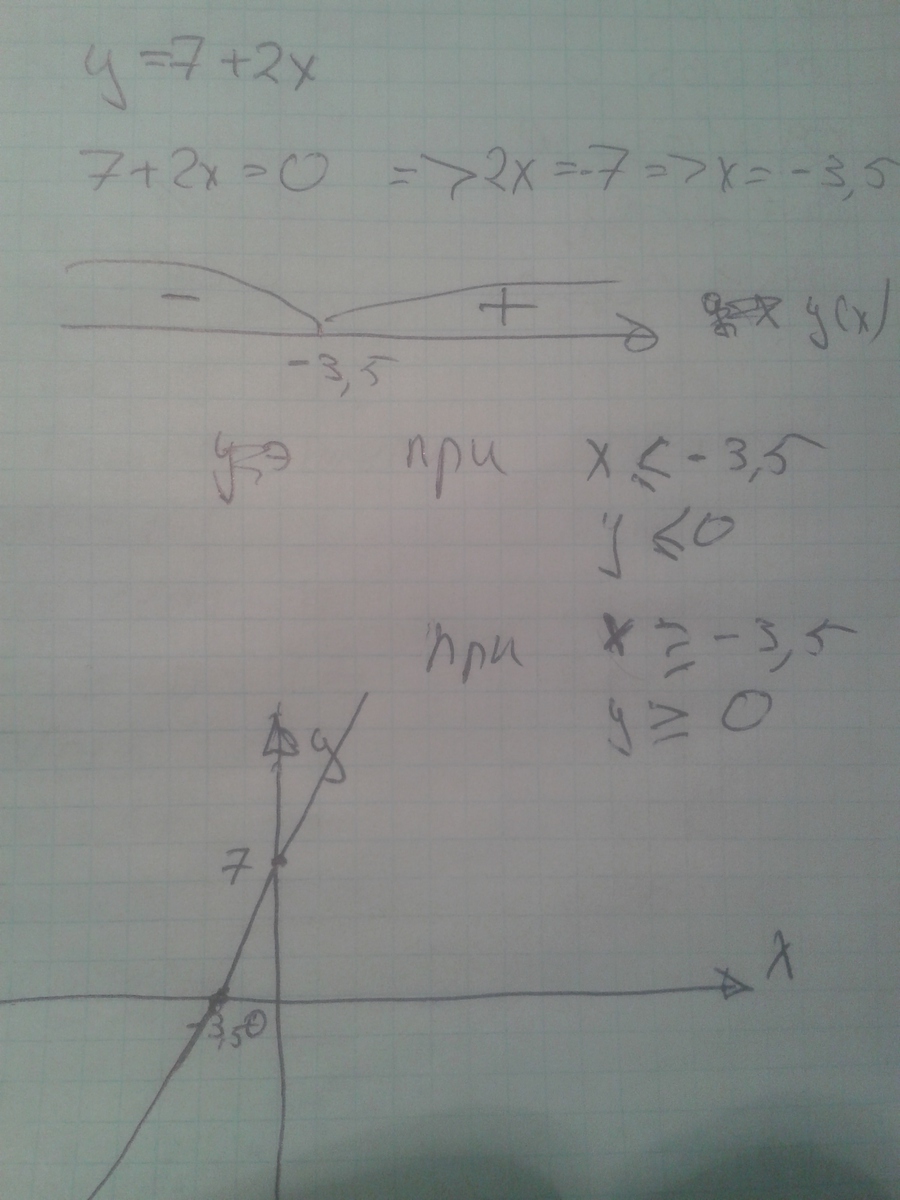 y=7+2x
7+2x=0 => 2x=-7 => x=-3,5
- +
y(x)
-3,5
при x ≤ -3,5
y ≤ 0
при x ≥ -3,5
y ≥ 0
y
7
x
-3,5 0